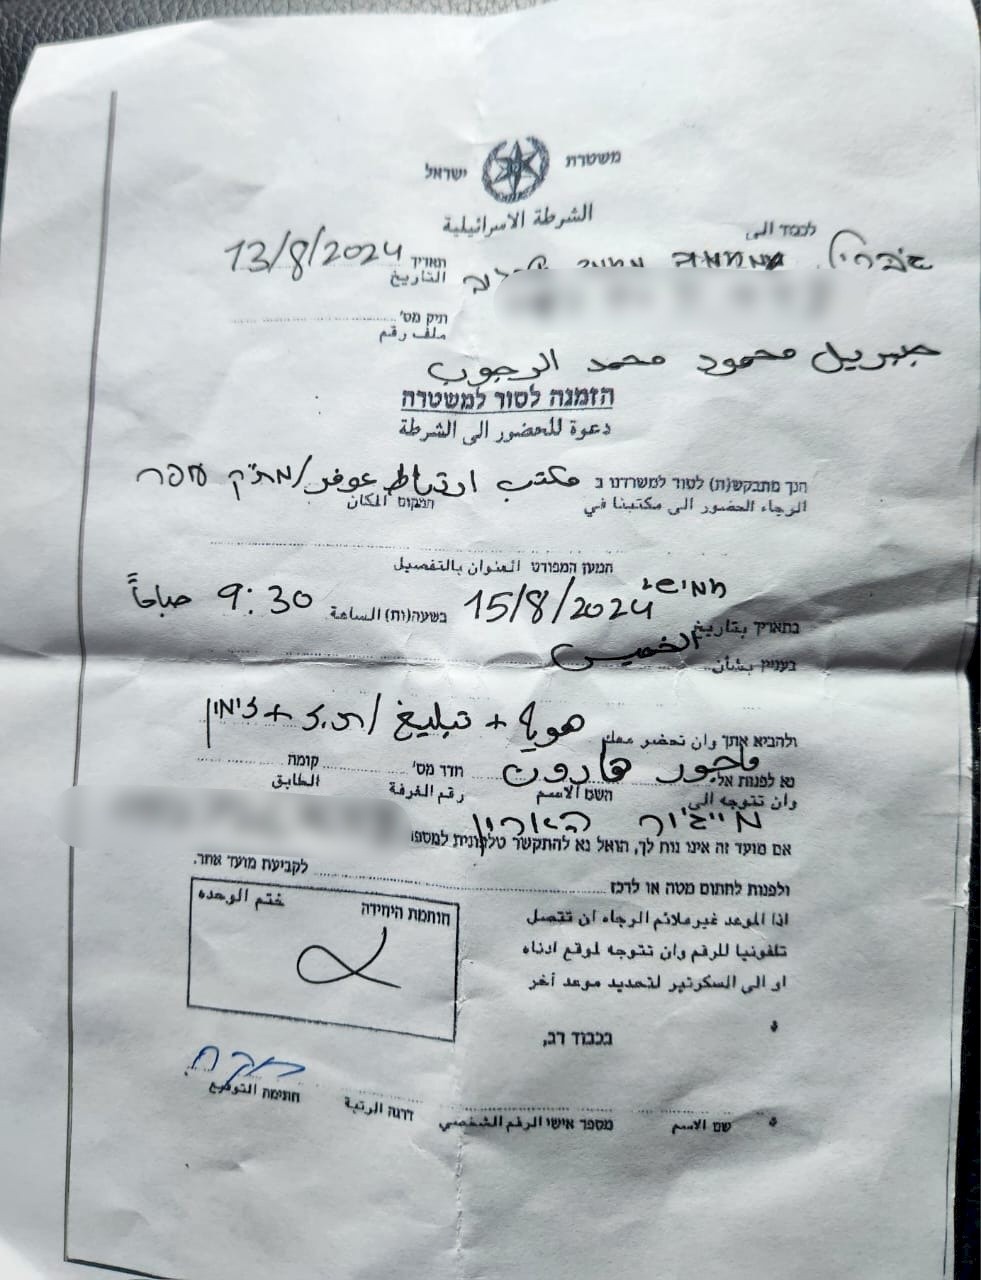 משטרת ישראל
الشرطة الاسرائيلية
לכבוד الى
תאריך 13/8/2024
التاريخ
תיק מס'
ملف رقم
جبريل محمود محمد الرجوب
הזמנה לסור למשטרה
دعوة للحضور الى الشرطة
הנך מתבקש(ת) לסור למשרדנו ב مكتب ارتباط عوفر/מת״ק עופר
الرجاء الحضور الى مكتبنا في המקום المكان
המען המפורט العنوان بالتفصيل
בתאריך بتاريخ 15/8/2024 חמישי בשעה(ות) الساعة 9:30 صباحاً
בענין بشأن الخميس
ולהביא אתך وان تحضر معك هوية + تبليغ / ת.ז + זימון
נא לפנות אל ماجور هارون חדר מס' קומה
وان تتوجه الى השם الاسم رقم الغرفة الطابق
מייג'ור הארון
אם מועד זה אינו נוח לך, הואל נא להתקשר טלפונית למספר
ולפנות לחתום מטה או לרכז לקביעת מועד אחר.
اذا الموعد غير ملائم الرجاء ان تتصل
تلفونيا للرقم وان تتوجه لموقع ادناه
او الى السكرتير لتحديد موعد أخر
חותמת היחידה ختم الوحده
בכבוד רב,
שם الاسم מספר אישי الرقم الشخصي דרגה الرتبة חתימה التوقيع